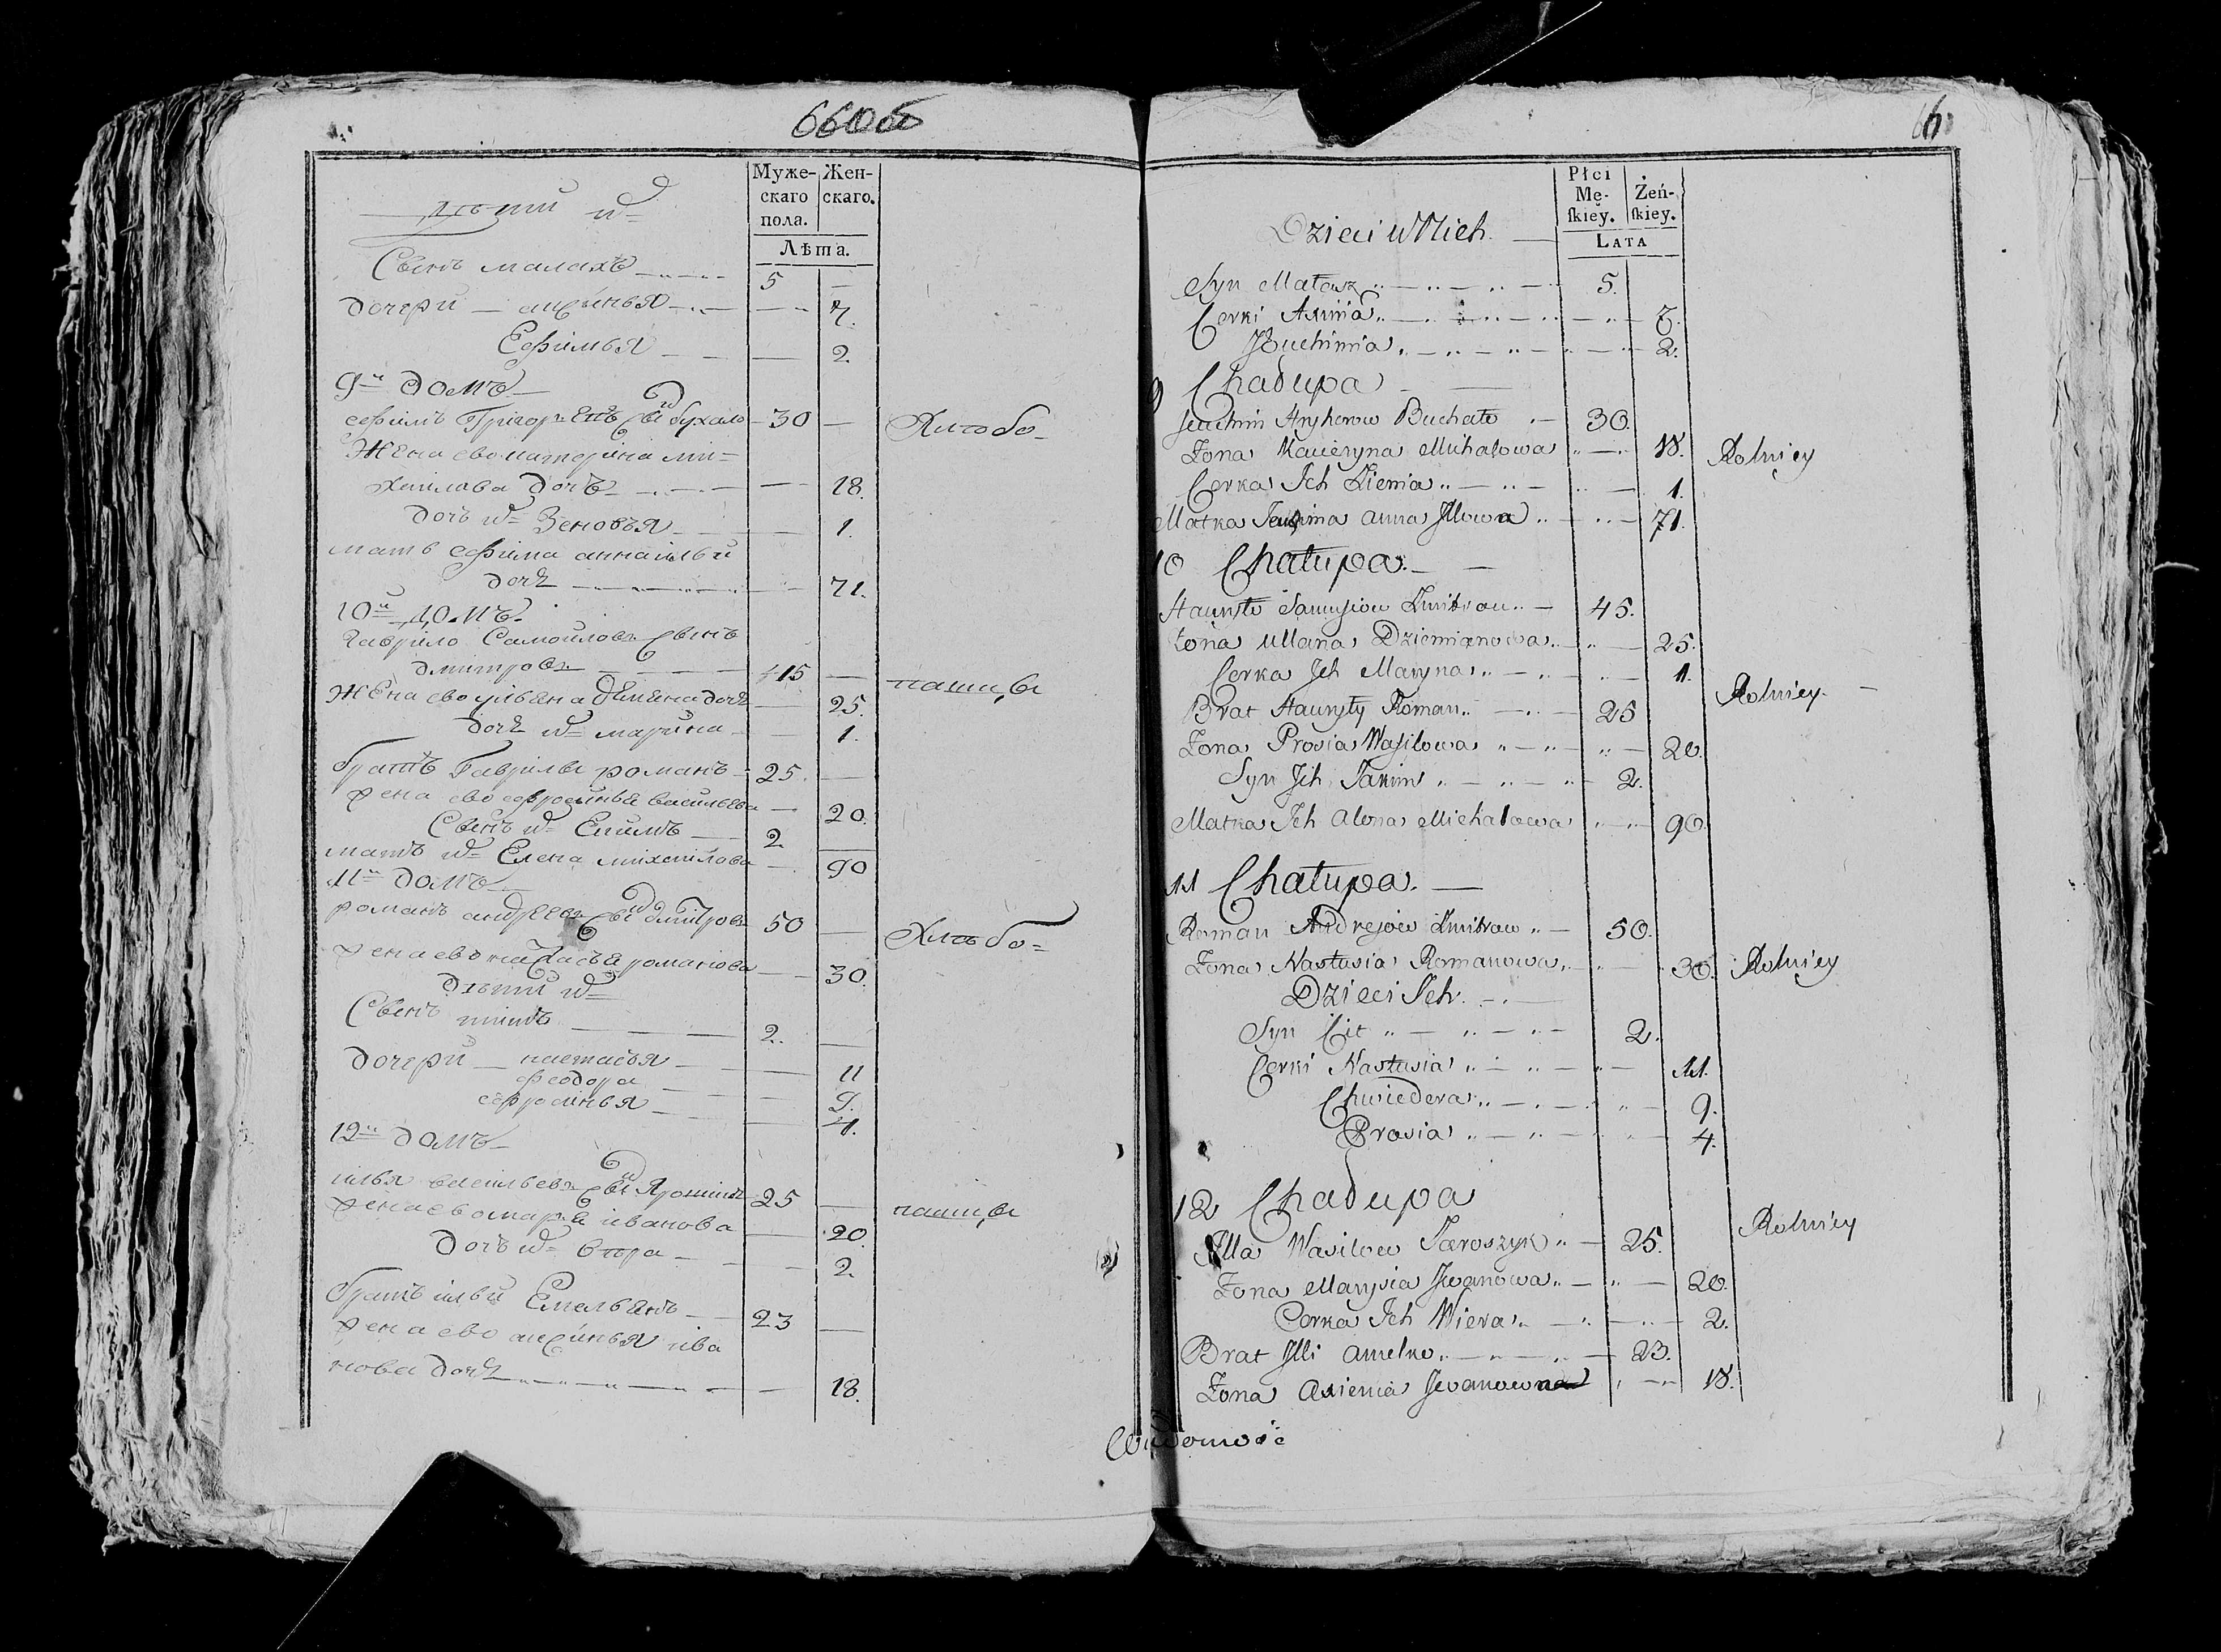 660б
Муже-
скаго
пола.
Жен-
скаго.
Лѣта.
дѣти их
Сынъ малахъ 5
дочери — аксинья 7.
Ефимья 2.
9й домъ
ефимъ Григорьевъ сынъ бухало 30 Хлѣбо-
Жена ево катерина ми-
хайлава дочь 18.
дочь их Зеновья 1.
мать ефима анна ильи
дочь 71.
10й домъ.
Гаврило Самойловъ сынъ
дмитровъ 45 пашцы
жена ево ульяна демяна дочь 25.
дочь их марина 1.
братъ Гаврилы романъ 25.
жена ево ефросинья васильева 20.
Сынъ их Екимъ 2
мать их Елена михайлова 90
11й домъ
романъ андреевъ сынъ дмитровъ 50 Хлѣбо-
жена ево настасья романова 30.
дѣти их
Сынъ титъ 2.
дочери — настасья 11
феодора 9.
ефросинья 4.
12й домъ
илья васильевъ сынъ Ярошикъ 25 пашцы
жена ево марья иванова 20.
дочь их вѣра 2.
братъ ильи Емельянъ 23
жена ево аксинья ива
нова дочь 18.
Płci
Mę-
ſkiey.
Żeń-
ſkiey.
LATA
Dzieci w Nich
Syn Mateusz 5.
Corki Axinia 7.
Jeuchimia 2.
9 Chałupa
Jeuchim Hryhorow Buchało 30.
Zona Kacieryna Michałowa 18. Rolnicy
Corka Ich Zienia 1.
Matka Jeuchima Anna Illowa 71.
10 Chałupa.
Hauryło Samusiow Zmitrow 45.
Zona Ullana Dziemianowa 25.
Corka Ich Maryna 1. Rolnicy
Brat Hauryły Roman 25
Zona Prosia Wasilowa 20.
Syn Ich Jakim 2.
Matka Ich Alona Michałowa 90.
11 Chałupa.
Roman Andrejow Zmitrow 50.
Zona Nastasia Romanowa 30. Rolnicy
Dzieci Ich
Syn Cit 2.
Corki Nastasia 11.
Chwiedora 9.
Prosia 4.
12 Chałupa
Illa Wasilow Jaroszyk 25. Rolnicy
Zona Marysia Iwanowa 20.
Corka Ich Wiera 2.
Brat Illi Amelko 23.
Zona Axienia Iwanowna 18.
Wiadomość